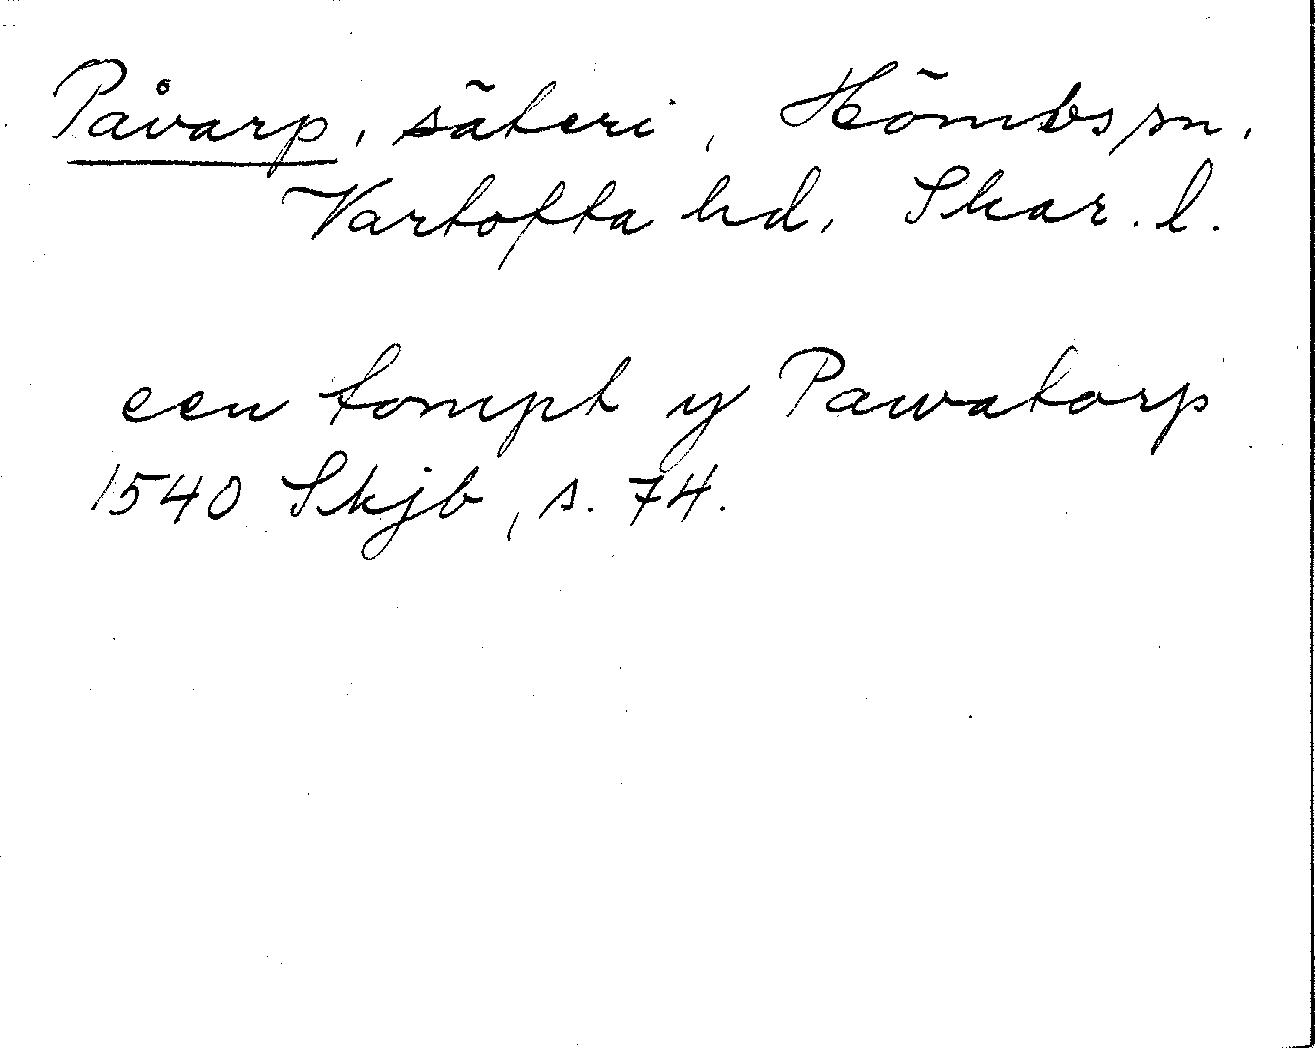 Påvarp, säteri, Hömbs sn,
Vartofta hd, Skar. l.
een tompt y Pawatorp
1540 Skjb, s. 74.